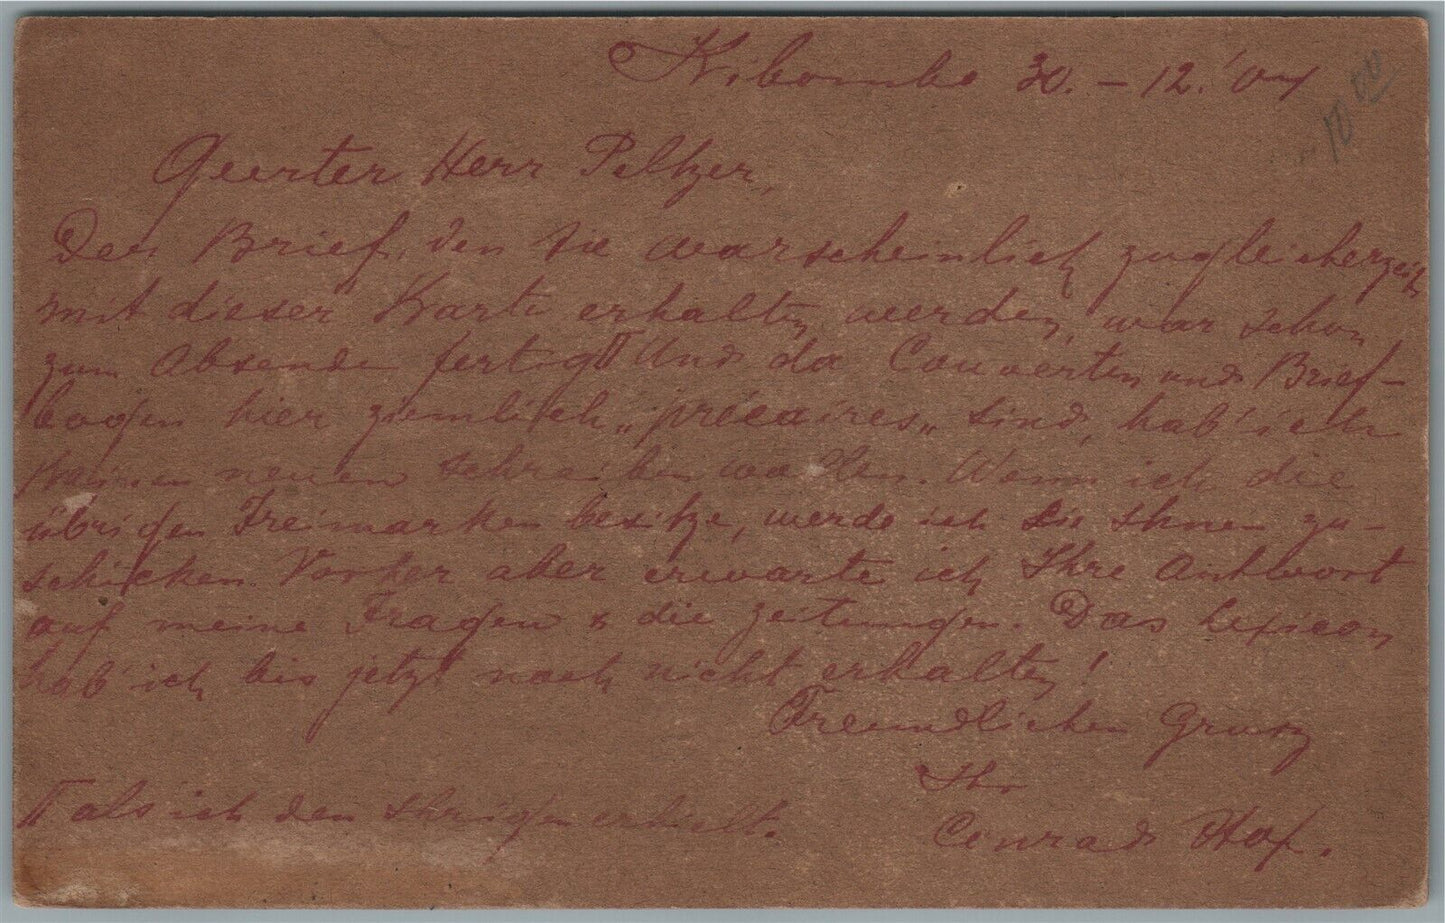 Kibombe 30. - 12.
Geerter Herr Peltzer,
Den Brief, den Sie warscheinlich zugleicherzeit
mit dieser Karte erhalten werden, war schon
zum Absenden fertig Γ Und da Couverten und Brief-
bogen hier ziemlich „précaires„ sind, hab' ich
keinen neuen schreiben wollen. Wenn ich die
übrigen Freimarken besitze, werde ich Sie Ihnen zu-
schicken. Vorher aber erwarte ich Ihre Antwort
auf meine Fragen & die Zeitungen. Das Lexicon
hab' ich bis jetzt noch nicht erhalten!
Freundlichen Grusz
Ihr
Conrad Hof.
Γ als ich den Ihrigen erhielt.